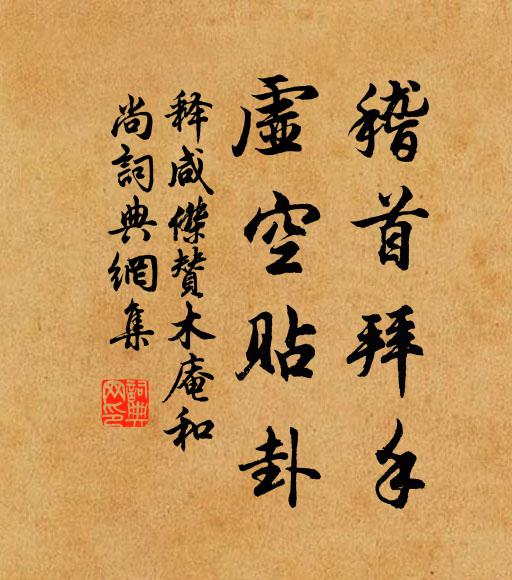 稽首拜手
虛空貼卦
释咸傑贊木庵和
尚詞典網集
詞典
网印